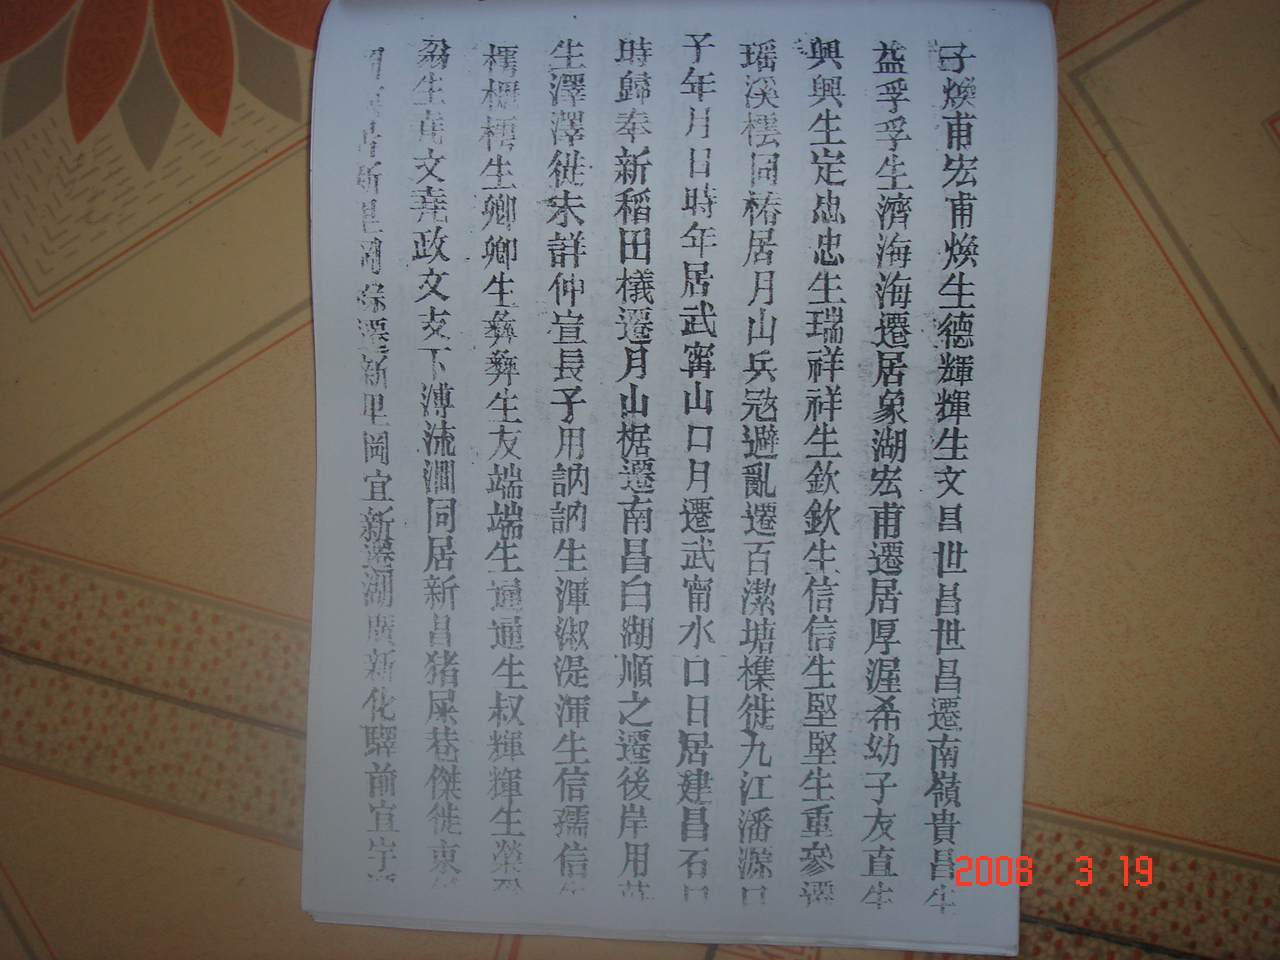 子煥甫宏甫煥生德輝輝生文昌世昌世昌遷南嶺貴昌生
益孚孚生濟海海遷居象湖宏甫遷居厚渥希幼子友直生
興興生定忠忠生瑞祥祥生欽欽生信信生堅堅生重參遷
瑶溪橒同椿居月山兵寇避亂遷百潔塘檏徙九江潘源口
子年月日時年居武寗山口月遷武甯水口日居建昌石口
時歸奉新稻田檥遷月山椐遷南昌白湖順之遷後岸用
生澤澤徙未詳仲宣長子用訥訥生渾淑湜渾生信孺信生
生卿卿生彝彝生友端端生通通生叔輝輝生榮
生堯文堯政文支下溥流澗同居新昌猪屎巷傑徙東
居新里遷新里岡宜新遷湖廣新化驛前宣字
2008 3 19